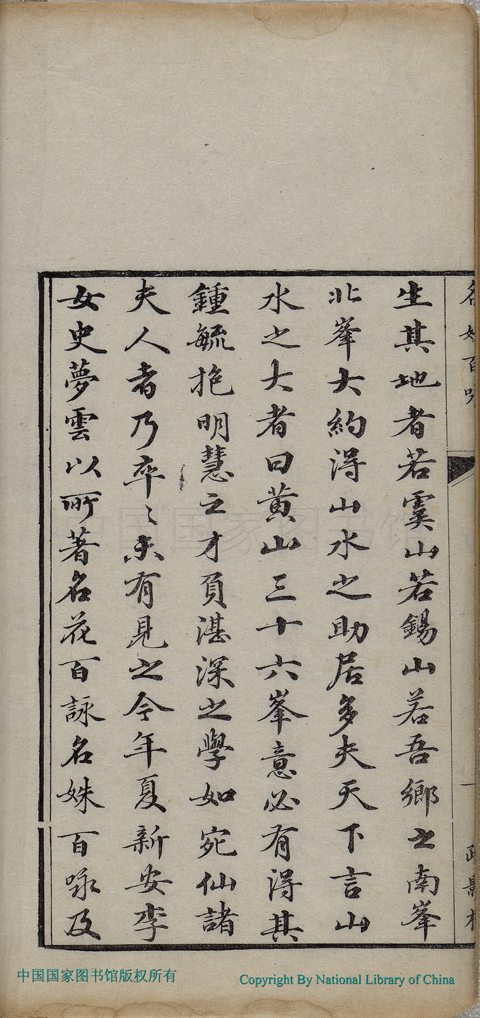 生其地者若虞山若錫山若吾鄉之南峯
北峯大約得山水之助居多夫天下言山
水之大者曰黄山三十六峯意必有得其
鍾毓抱明慧之才負湛深之學如宛仙諸
夫人者乃卒卒未有見之今年夏新安李
女史夢雲以所著名花百詠名姝百咏及
中国国家图书馆
中国国家图书馆版权所有
Copyright By National Library of China